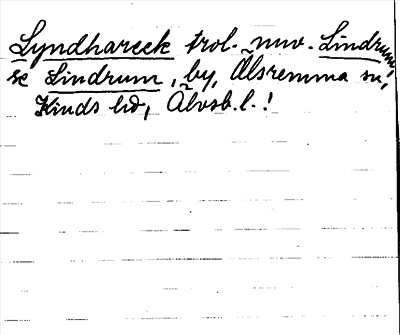 Lyndhareck trol. nuv. Lindrum,
se Lindrum, by, Ölsremma sn,
Kinds hd, Älvsb. l.!